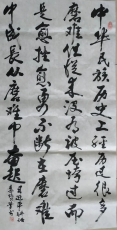 中华民族历史上经历过很多
磨难但从来没有被压垮过而
是愈挫愈勇不断在磨难
中成长从磨难中奋起